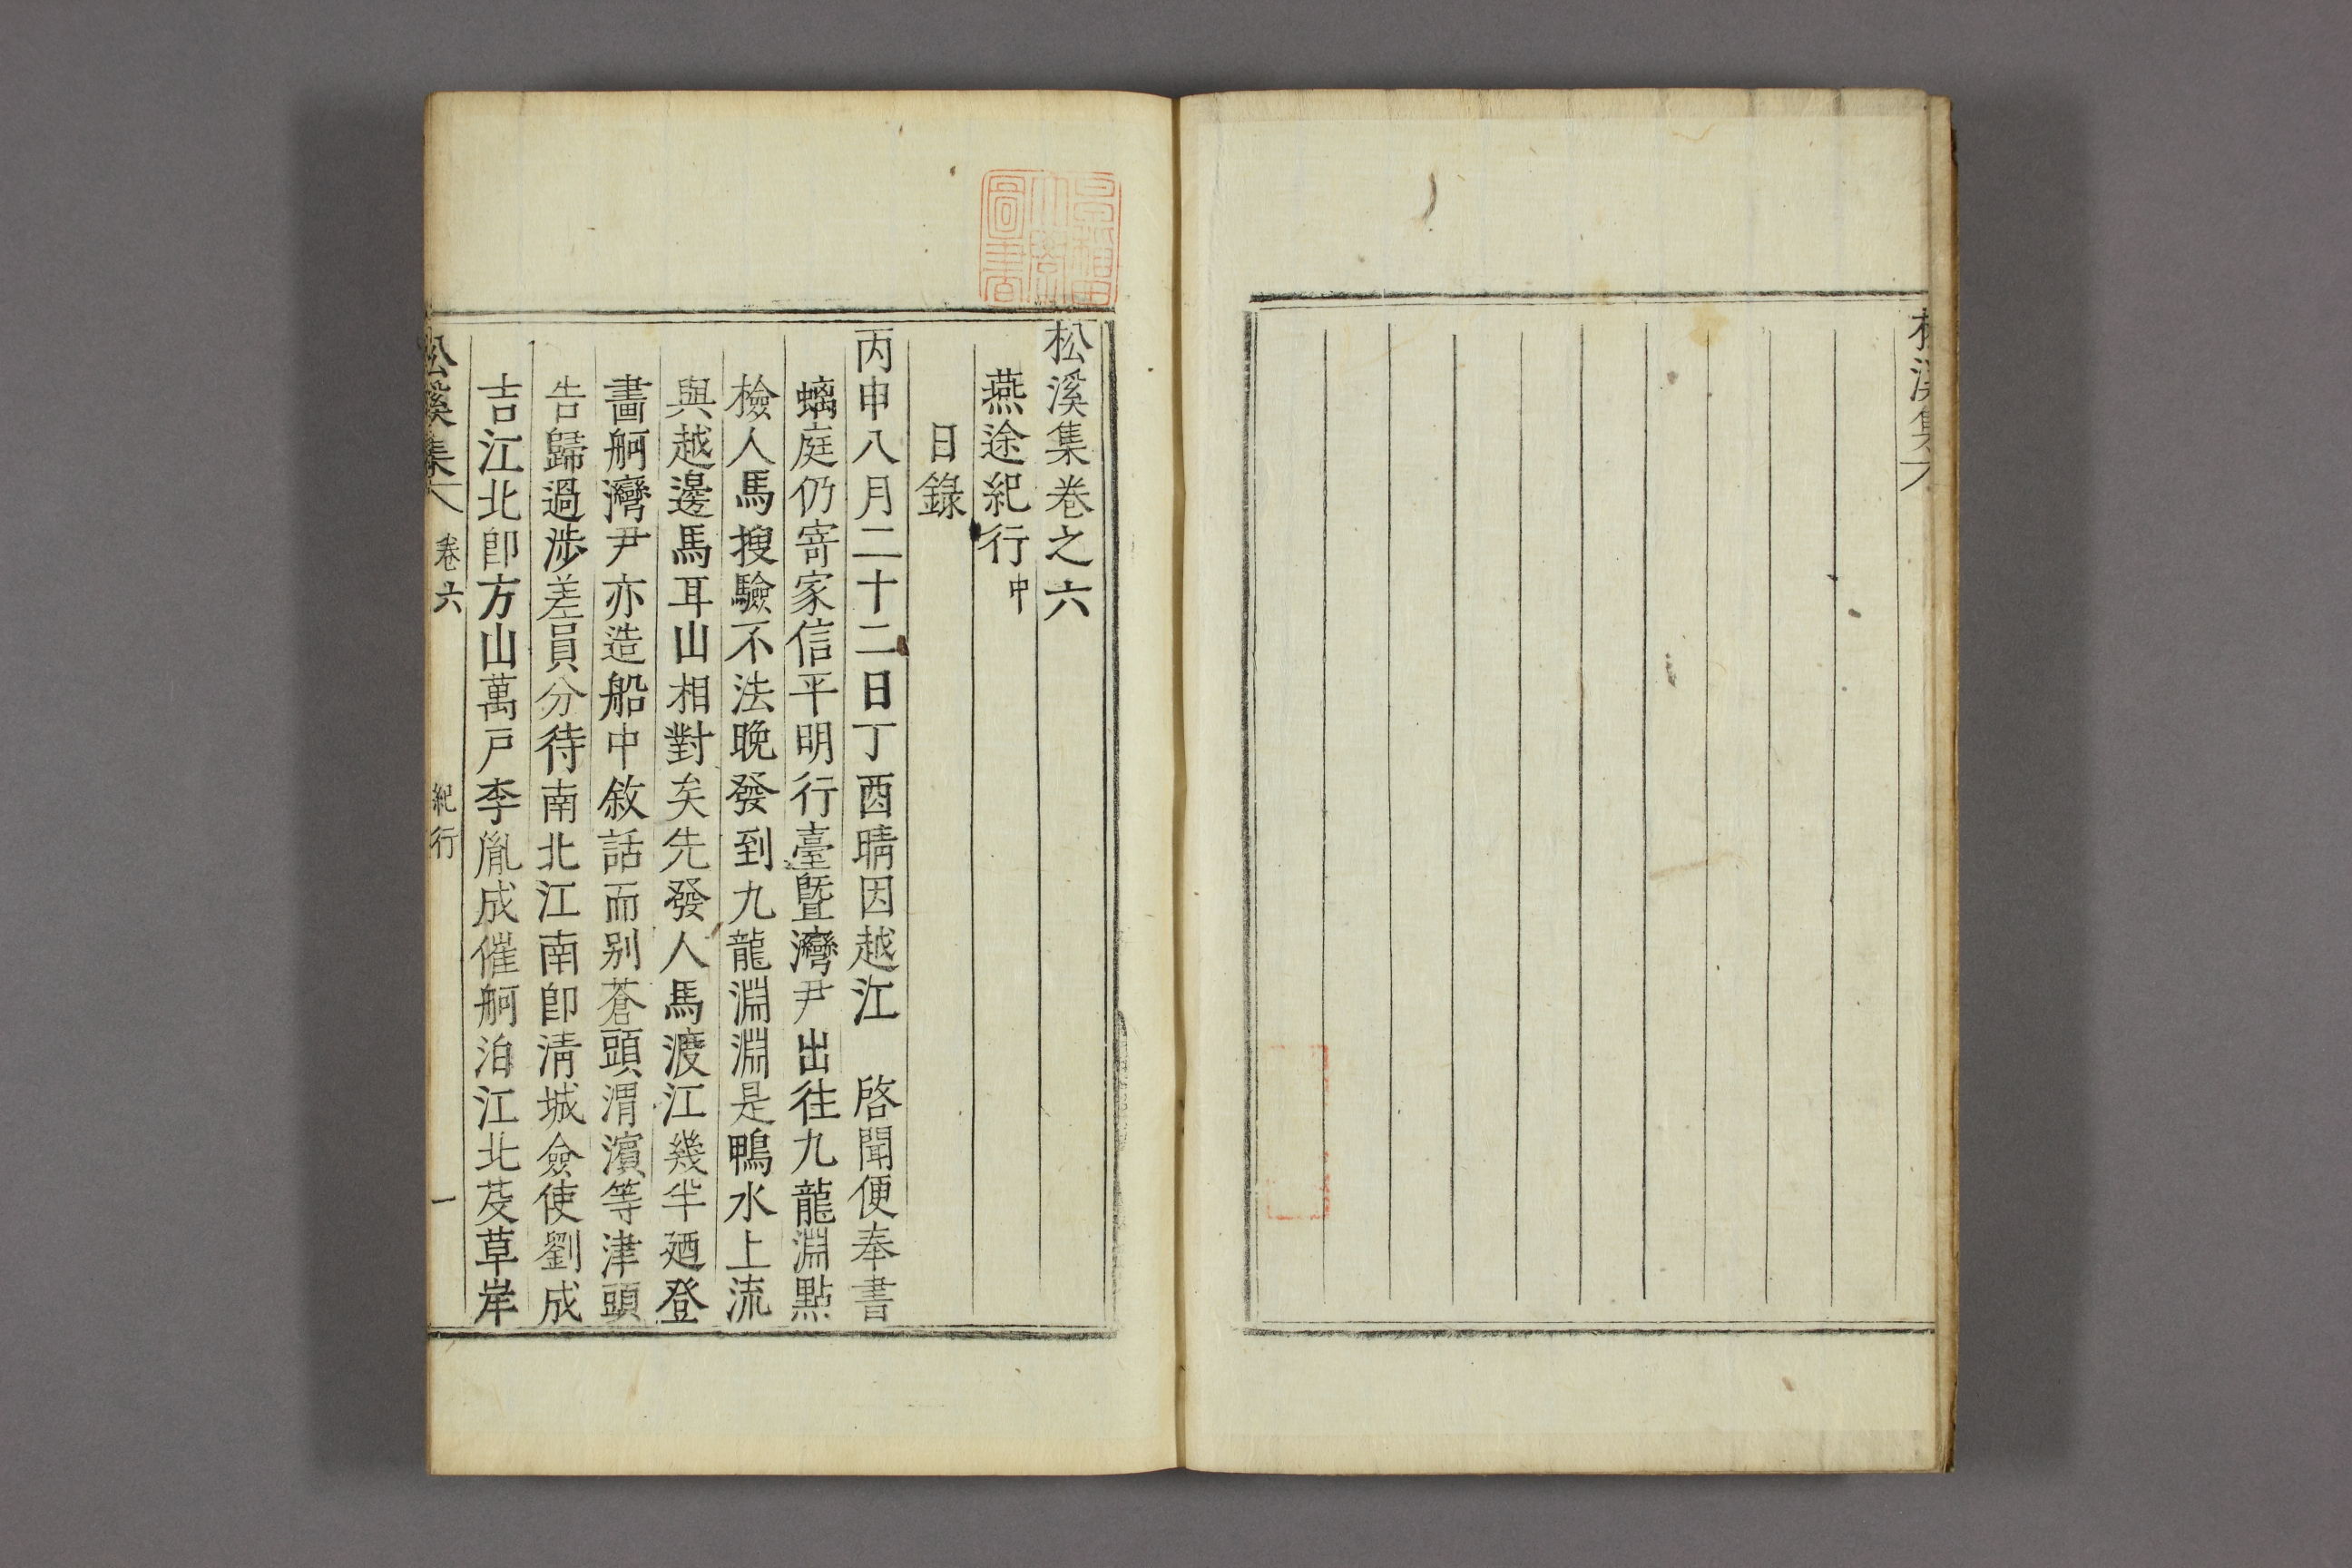 松溪集
松溪集卷之六
燕途紀行中
日錄
丙申八月二十二日丁酉晴因越江 啓聞便奉書
螭庭仍寄家信平明行臺曁灣尹出往九龍淵點
檢人馬搜驗不法晚發到九龍淵淵是鴨水上流
與越邊馬耳山相對矣先發人馬渡江幾半廼登
畵舸灣尹亦造船中敘話而别蒼頭渭濱等津頭
告歸過涉差員分待南北江南卽淸城僉使劉成
吉江北卽方山萬戶李胤成催舸泊江北芆草岸
松溪集 卷六 紀行 一
圖書